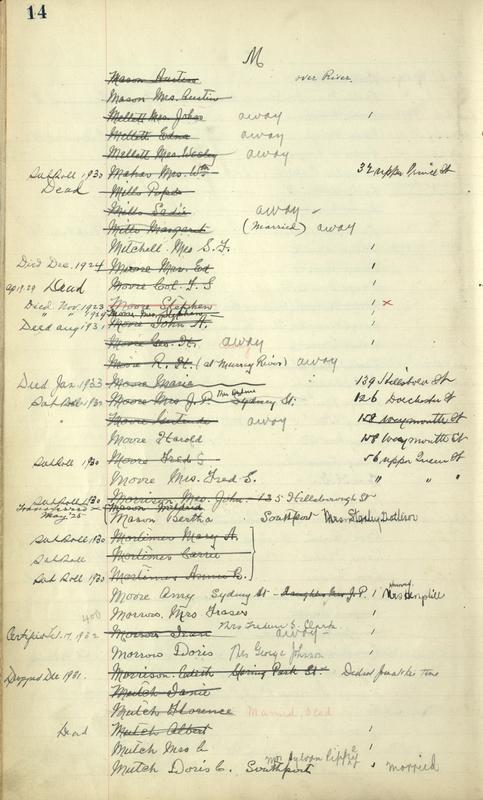 14
M
Mason Austin over River
Mason Mrs. Austin
Mellett Mrs. John away
Mellett Edna away
Mellett Mrs. Wesley away
Sub Roll 1930 Mahar Mrs. Wm 32 upper Prince St
Dead Mills
Mills Sadie away
Mills Margaret (Married) away
Mitchell Mrs S. F.
Died Dec. 1924 Moore Mrs. Ed
Dead Moore Col. T. S
Died Nov. 1923 Moore Stephen x
Moore Mrs. Stephen
Died Aug 1931 Moore John H.
Moore Geo. H. away
Moore R. H. (at Murray River) away
Died Jan. 1933 Moore Marie 139 Hillsboro St
Sub Roll 1930 Moore Mrs J. P. Sydney St. 126 Dorchester St
Moore Gertrude away 158 Weymouth St
Moore Harold 158 Weymouth St
Sub Roll 1930 Moore Fred S 56 upper Queen St
Moore Mrs. Fred S. " " "
Sub Roll 1930 Morrison Mrs. John 135 Hillsborough St
Transferred May '25 Mason Wilfred
Mason Bertha Southport Mrs Stanley
Sub Roll 1930 Mortimer Mary A.
Sub Roll Mortimer Carrie
Sub Roll 1930 Mortimer Annie C.
Moore Amy Sydney St - daughter Mrs J. P. Mrs Hemphill
Morrow Mrs Fraser
Mrs Frederic S. Clark
1932 Morrow Jean away
Morrow Doris Mrs George Johnson
Dropped Dec 1931. Morrison Edith Spring Park St.
Mutch Janie
Mutch Florence Married, dead
Dead Mutch Albert
Mutch Mrs A
Mutch Doris C. Southport Mrs Sylvan married